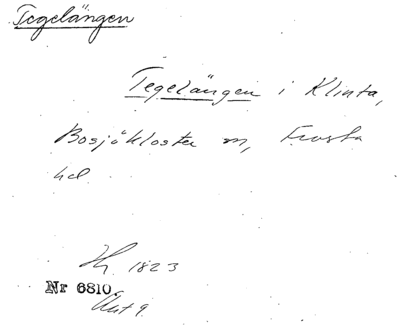 Tegelängen
Tegelängen i Klinta,
Bosjökloster m, Frosta
hd
1823
Nr 6810
Akt 9.